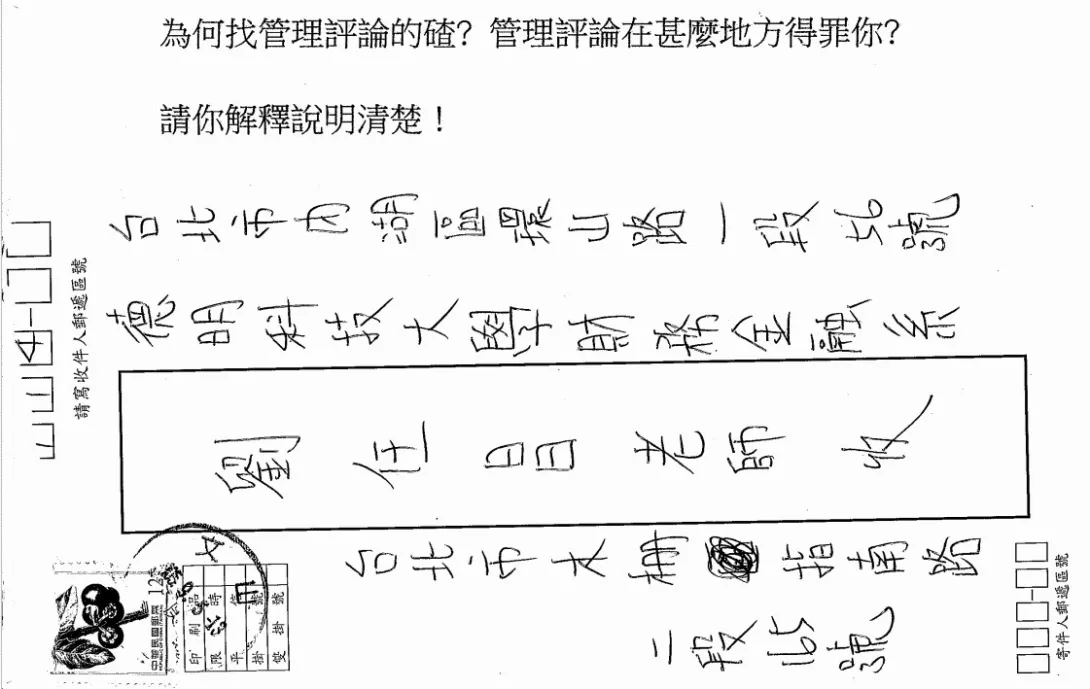 為何找管理評論的碴？管理評論在甚麼地方得罪你？
請你解釋說明清楚！
台北市內湖區環山路一段56號
德明科技大學財務金融系
劉任昌老師 收
台北市木柵指南路
二段64號
114
請寫收件人郵遞區號
寄件人郵遞區號
中華民國郵票 12
印刷品
限時
平
掛號
雙掛號